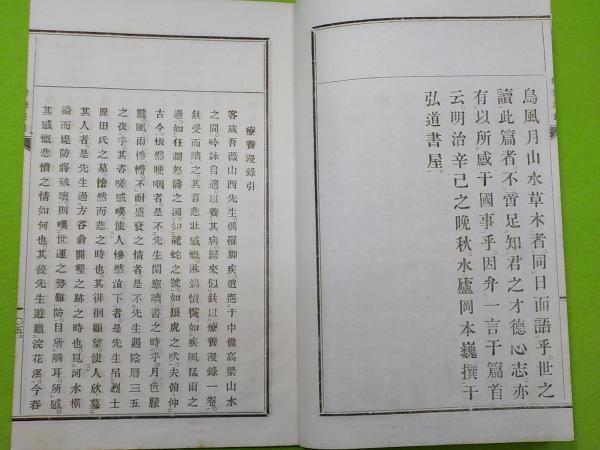 鳥風月山水草木者同日而語乎。世之
讀此篇者不啻足知君之才德心志。亦
有以所感于國事乎。因弁一言于篇首
云。明治辛己之晚秋。水廬岡本巍撰于
弘道書屋。
療養漫錄引
客歲吾薇山西先生。偶罹脚疾。逍遙于中備高梁山水
之間。吟詠自適。以養其病。歸來似鈇以療養漫錄一卷。
鈇受而讀之。其音悲壯感慨。淋漓憤惋。如疾風猛雨之
過。如狂瀾怒濤之湧。如龍蛇之號。如頭虎之吠。夫俯仰
古今。悵然哽咽者。是不先生閑窓讀書之時乎。月色朦
朧。風雨慘憺。不耐盛衰之情者。是不先生遇陰曆三五
之夜乎。其沓嗟感嘆。使人慘然淚下者。是先生吊烈士
原田氏之墓。愴然而悲之時也。其徘徊顧望使人欣慕
其人者。是先生過方谷翁開墾之跡之時也。見河水橫
溢而堤防將破壞。則嘆世運之勢難防。目所觸耳所感。
其感慨悲憤之情如何也。其後先生遊獵浣花溪。今春
〇五